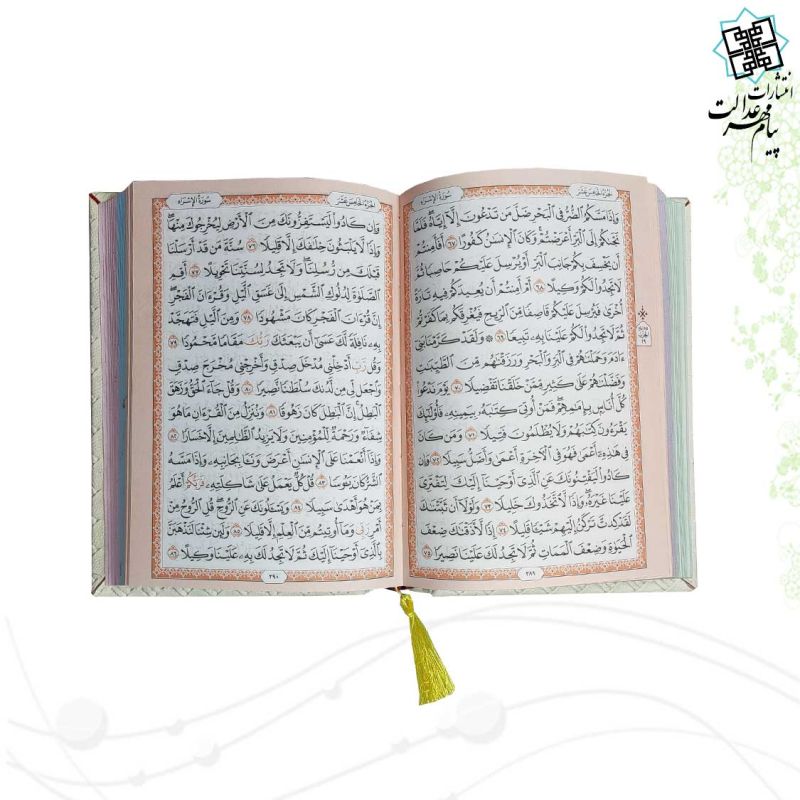 انتشارات
پیام مهر عدالت
الجُزءُ الخَامِسَ عَشَرَ
سُورَةُ الإِسْرَاء
وَإِذَا مَسَّكُمُ ٱلضُّرُّ فِي ٱلْبَحْرِ ضَلَّ مَن تَدْعُونَ إِلَّآ إِيَّاهُ ۖ فَلَمَّا
نَجَّىٰكُمْ إِلَى ٱلْبَرِّ أَعْرَضْتُمْ ۚ وَكَانَ ٱلْإِنسَٰنُ كَفُورًا ٦٧ أَفَأَمِنتُمْ
أَن يَخْسِفَ بِكُمْ جَانِبَ ٱلْبَرِّ أَوْ يُرْسِلَ عَلَيْكُمْ حَاصِبًا ثُمَّ
لَا تَجِدُوا۟ لَكُمْ وَكِيلًا ٦٨ أَمْ أَمِنتُمْ أَن يُعِيدَكُمْ فِيهِ تَارَةً
أُخْرَىٰ فَيُرْسِلَ عَلَيْكُمْ قَاصِفًا مِّنَ ٱلرِّيحِ فَيُغْرِقَكُم بِمَا كَفَرْتُمْ
ثُمَّ لَا تَجِدُوا۟ لَكُمْ عَلَيْنَا بِهِۦ تَبِيعًا ٦٩ ۞ وَلَقَدْ كَرَّمْنَا بَنِىٓ
ءَادَمَ وَحَمَلْنَٰهُمْ فِي ٱلْبَرِّ وَٱلْبَحْرِ وَرَزَقْنَٰهُم مِّنَ ٱلطَّيِّبَٰتِ
وَفَضَّلْنَٰهُمْ عَلَىٰ كَثِيرٍ مِّمَّنْ خَلَقْنَا تَفْضِيلًا ٧٠ يَوْمَ نَدْعُوا۟
كُلَّ أُنَاسٍۭ بِإِمَٰمِهِمْ ۖ فَمَنْ أُوتِيَ كِتَٰبَهُۥ بِيَمِينِهِۦ فَأُو۟لَٰٓئِكَ
يَقْرَءُونَ كِتَٰبَهُمْ وَلَا يُظْلَمُونَ فَتِيلًا ٧١ وَمَن كَانَ
فِي هَٰذِهِۦٓ أَعْمَىٰ فَهُوَ فِي ٱلْءَاخِرَةِ أَعْمَىٰ وَأَضَلُّ سَبِيلًا ٧٢ وَإِن
كَادُوا۟ لَيَفْتِنُونَكَ عَنِ ٱلَّذِىٓ أَوْحَيْنَآ إِلَيْكَ لِتَفْتَرِىَ
عَلَيْنَا غَيْرَهُۥ ۖ وَإِذًا لَّٱتَّخَذُوكَ خَلِيلًا ٧٣ وَلَوْلَآ أَن ثَبَّتْنَٰكَ
لَقَدْ كِدتَّ تَرْكَنُ إِلَيْهِمْ شَيْـًٔا قَلِيلًا ٧٤ إِذًا لَّأَذَقْنَٰكَ ضِعْفَ
ٱلْحَيَوٰةِ وَضِعْفَ ٱلْمَمَاتِ ثُمَّ لَا تَجِدُ لَكَ عَلَيْنَا نَصِيرًا ٧٥
٢٨٩
الجُزءُ الخَامِسَ عَشَرَ
سُورَةُ الإِسْرَاء
وَإِن كَادُوا۟ لَيَسْتَفِزُّونَكَ مِنَ ٱلْأَرْضِ لِيُخْرِجُوكَ مِنْهَا ۖ
وَإِذًا لَّا يَلْبَثُونَ خِلَٰفَكَ إِلَّا قَلِيلًا ٧٦ سُنَّةَ مَن قَدْ أَرْسَلْنَا
قَبْلَكَ مِن رُّسُلِنَا ۖ وَلَا تَجِدُ لِسُنَّتِنَا تَحْوِيلًا ٧٧ أَقِمِ
ٱلصَّلَوٰةَ لِدُلُوكِ ٱلشَّمْسِ إِلَىٰ غَسَقِ ٱلَّيْلِ وَقُرْءَانَ ٱلْفَجْرِ ۖ
إِنَّ قُرْءَانَ ٱلْفَجْرِ كَانَ مَشْهُودًا ٧٨ وَمِنَ ٱلَّيْلِ فَتَهَجَّدْ
بِهِۦ نَافِلَةً لَّكَ عَسَىٰٓ أَن يَبْعَثَكَ رَبُّكَ مَقَامًا مَّحْمُودًا ٧٩
وَقُل رَّبِّ أَدْخِلْنِي مُدْخَلَ صِدْقٍ وَأَخْرِجْنِي مُخْرَجَ صِدْقٍ
وَٱجْعَل لِّي مِن لَّدُنكَ سُلْطَٰنًا نَّصِيرًا ٨٠ وَقُلْ جَآءَ ٱلْحَقُّ وَزَهَقَ
ٱلْبَٰطِلُ ۚ إِنَّ ٱلْبَٰطِلَ كَانَ زَهُوقًا ٨١ وَنُنَزِّلُ مِنَ ٱلْقُرْءَانِ مَا هُوَ
شِفَآءٌ وَرَحْمَةٌ لِّلْمُؤْمِنِينَ ۙ وَلَا يَزِيدُ ٱلظَّٰلِمِينَ إِلَّا خَسَارًا ٨٢
وَإِذَآ أَنْعَمْنَا عَلَى ٱلْإِنسَٰنِ أَعْرَضَ وَنَـَٔا بِجَانِبِهِۦ ۖ وَإِذَا مَسَّهُ
ٱلشَّرُّ كَانَ يَـُٔوسًا ٨٣ قُلْ كُلٌّ يَعْمَلُ عَلَىٰ شَاكِلَتِهِۦ فَرَبُّكُمْ أَعْلَمُ
بِمَنْ هُوَ أَهْدَىٰ سَبِيلًا ٨٤ وَيَسْـَٔلُونَكَ عَنِ ٱلرُّوحِ ۖ قُلِ ٱلرُّوحُ مِنْ
أَمْرِ رَبِّي وَمَآ أُوتِيتُم مِّنَ ٱلْعِلْمِ إِلَّا قَلِيلًا ٨٥ وَلَئِن شِئْنَا لَنَذْهَبَنَّ
بِٱلَّذِىٓ أَوْحَيْنَآ إِلَيْكَ ثُمَّ لَا تَجِدُ لَكَ بِهِۦ عَلَيْنَا وَكِيلًا ٨٦
٢٩٠